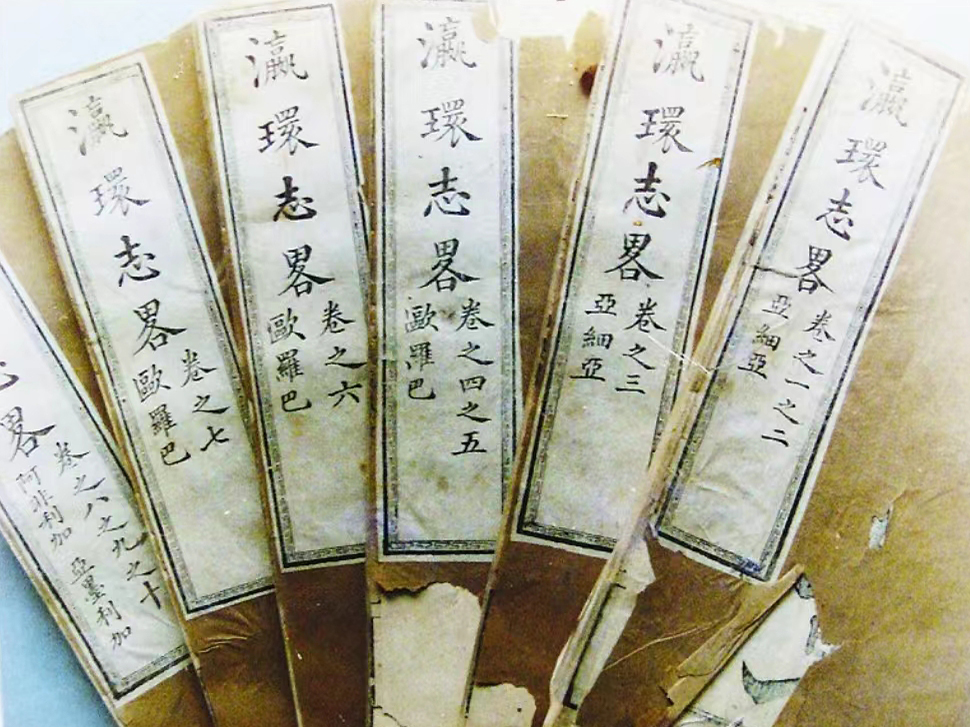 瀛環志畧
卷之一之二
亞細亞
瀛環志畧
卷之三
亞細亞
瀛環志畧
卷之四之五
歐羅巴
瀛環志畧
卷之六
歐羅巴
瀛環志畧
卷之七
歐羅巴
志畧
卷之八之九之十
阿非利加 亞墨利加